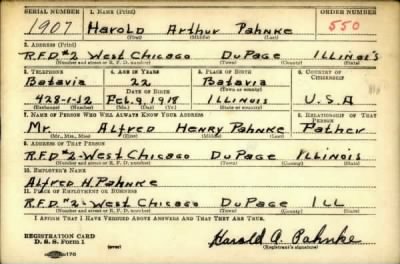 SERIAL NUMBER 1. NAME (Print) ORDER NUMBER
1907 Harold Arthur Pahnke 550
(First) (Middle) (Last)
2. ADDRESS (Print)
R.F.D #2 West Chicago DuPage Illinois
(Number and street or R. F. D. number) (Town) (County) (State)
3. TELEPHONE 4. AGE IN YEARS 5. PLACE OF BIRTH 6. COUNTRY OF CITIZENSHIP
Batavia 22 Batavia
DATE OF BIRTH (Town or county)
428-1-12 Feb. 9, 1918 Illinois U.S.A
(Exchange) (Number) (Mo.) (Day) (Yr.) (State or country)
7. NAME OF PERSON WHO WILL ALWAYS KNOW YOUR ADDRESS 8. RELATIONSHIP OF THAT PERSON
Mr. Alfred Henry Pahnke Father
(Mr., Mrs., Miss) (First) (Middle) (Last)
9. ADDRESS OF THAT PERSON
R.F.D #2-West Chicago DuPage Illinois
(Number and street or R. F. D. number) (Town) (County) (State)
10. EMPLOYER'S NAME
Alfred H. Pahnke
11. PLACE OF EMPLOYMENT OR BUSINESS
R.F.D. #2-West Chicago DuPage Ill
(Number and street or R. F. D. number) (Town) (County) (State)
I AFFIRM THAT I HAVE VERIFIED ABOVE ANSWERS AND THAT THEY ARE TRUE.
REGISTRATION CARD
D. S. S. Form 1 (over) Harold A. Pahnke
(Registrant's signature)